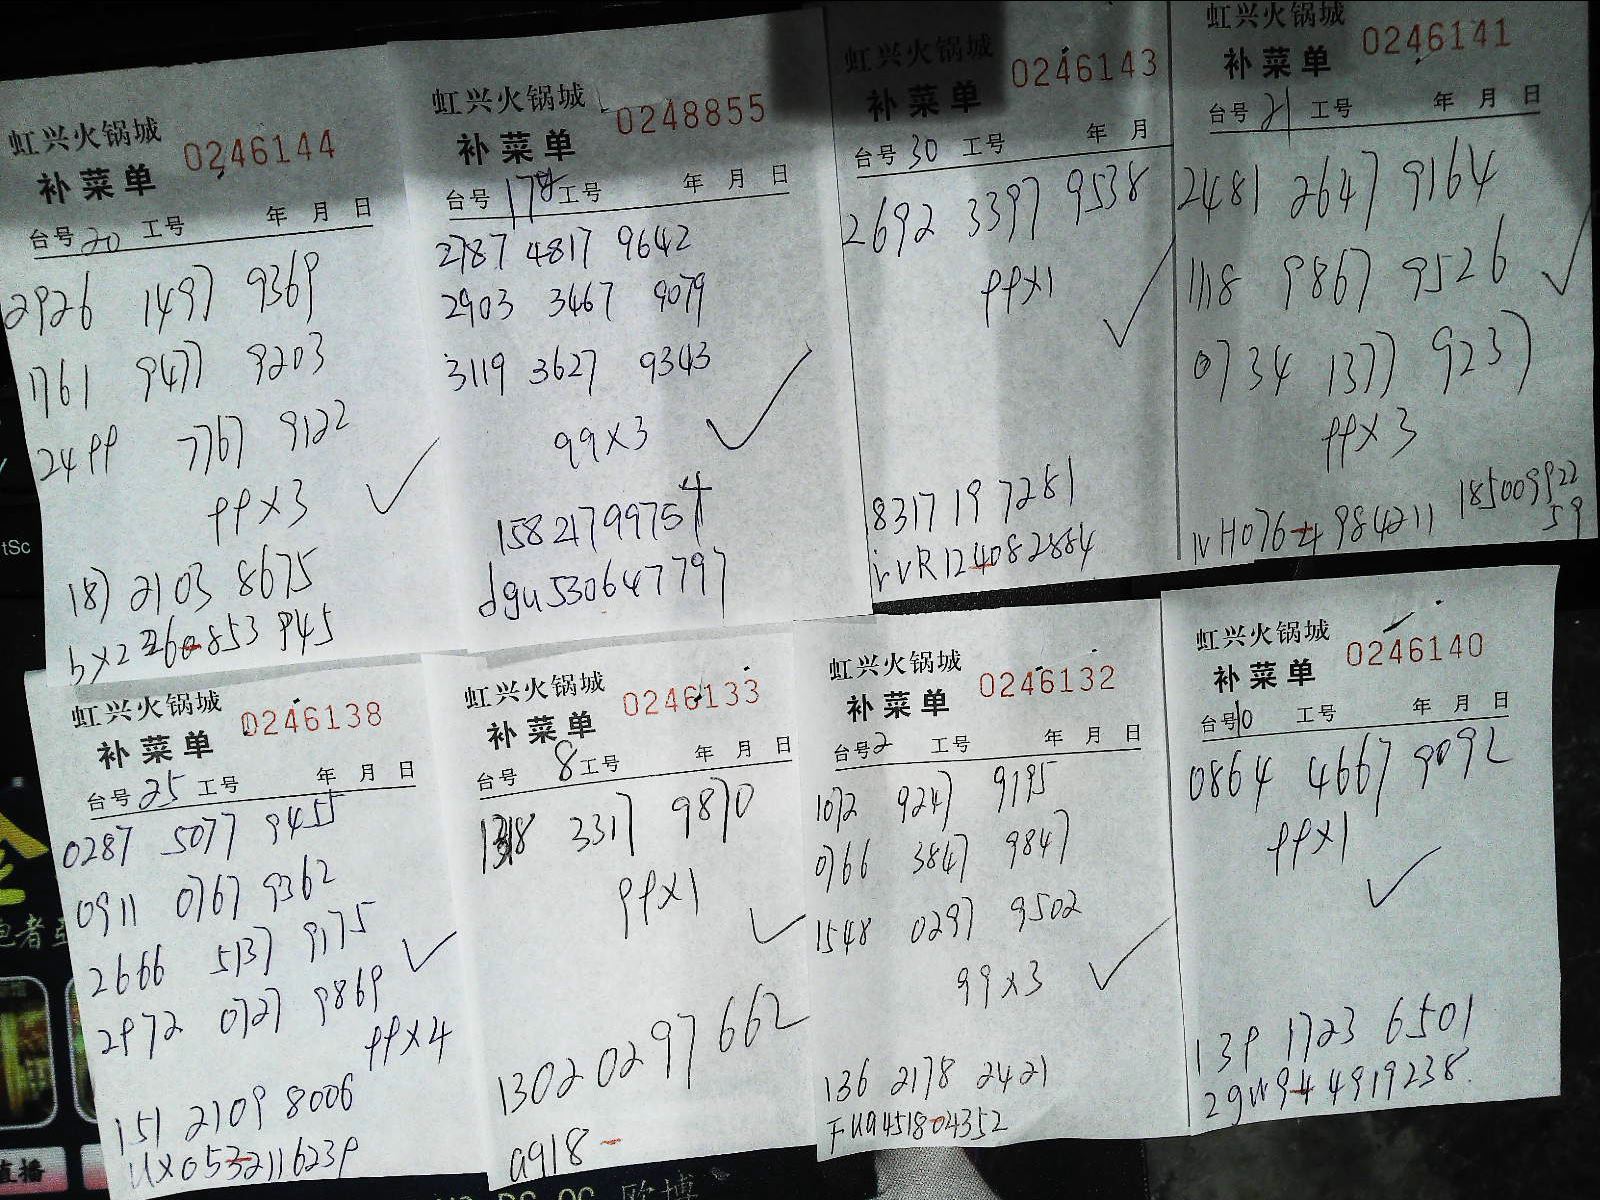 虹兴火锅城
补菜单 0246144
台号 20 工号 年 月 日
2926 1497 9369
1761 9477 9203
2499 7767 9122
99x3
187 2103 8675
虹兴火锅城
补菜单 0248855
台号 工号 年 月 日
2787 4817 9642
2903 3467 9079
3119 3627 9343
99x3
15821799754
dgu530647797
虹兴火锅城
补菜单 0246143
台号 30 工号 年 月
2692 3397 9538
99x1
8317 19 7281
ivR124082884
虹兴火锅城
补菜单 0246141
台号 21 工号 年 月 日
2481 2647 9164
1118 9867 9526
0734 1377 9237
99x3
18500992259
tSc
虹兴火锅城
补菜单 0246138
台号 25 工号 年 月 日
0287 5077 9455
0911 0767 9362
2666 5137 9175
2972 0727 9869
99x4
151 2109 8006
UX0532116239
虹兴火锅城
补菜单 0246133
台号 8 工号 年 月 日
3317 9870
99x1
13020297662
a918-
虹兴火锅城
补菜单 0246132
台号 2 工号 年 月 日
1072 9247 9195
0766 3847 9847
1548 0297 9502
99x3
136 2178 2421
虹兴火锅城
补菜单 0246140
台号 10 工号 年 月 日
0864 4667 9092
99x1
139 1723 6501
29W944919238
直播